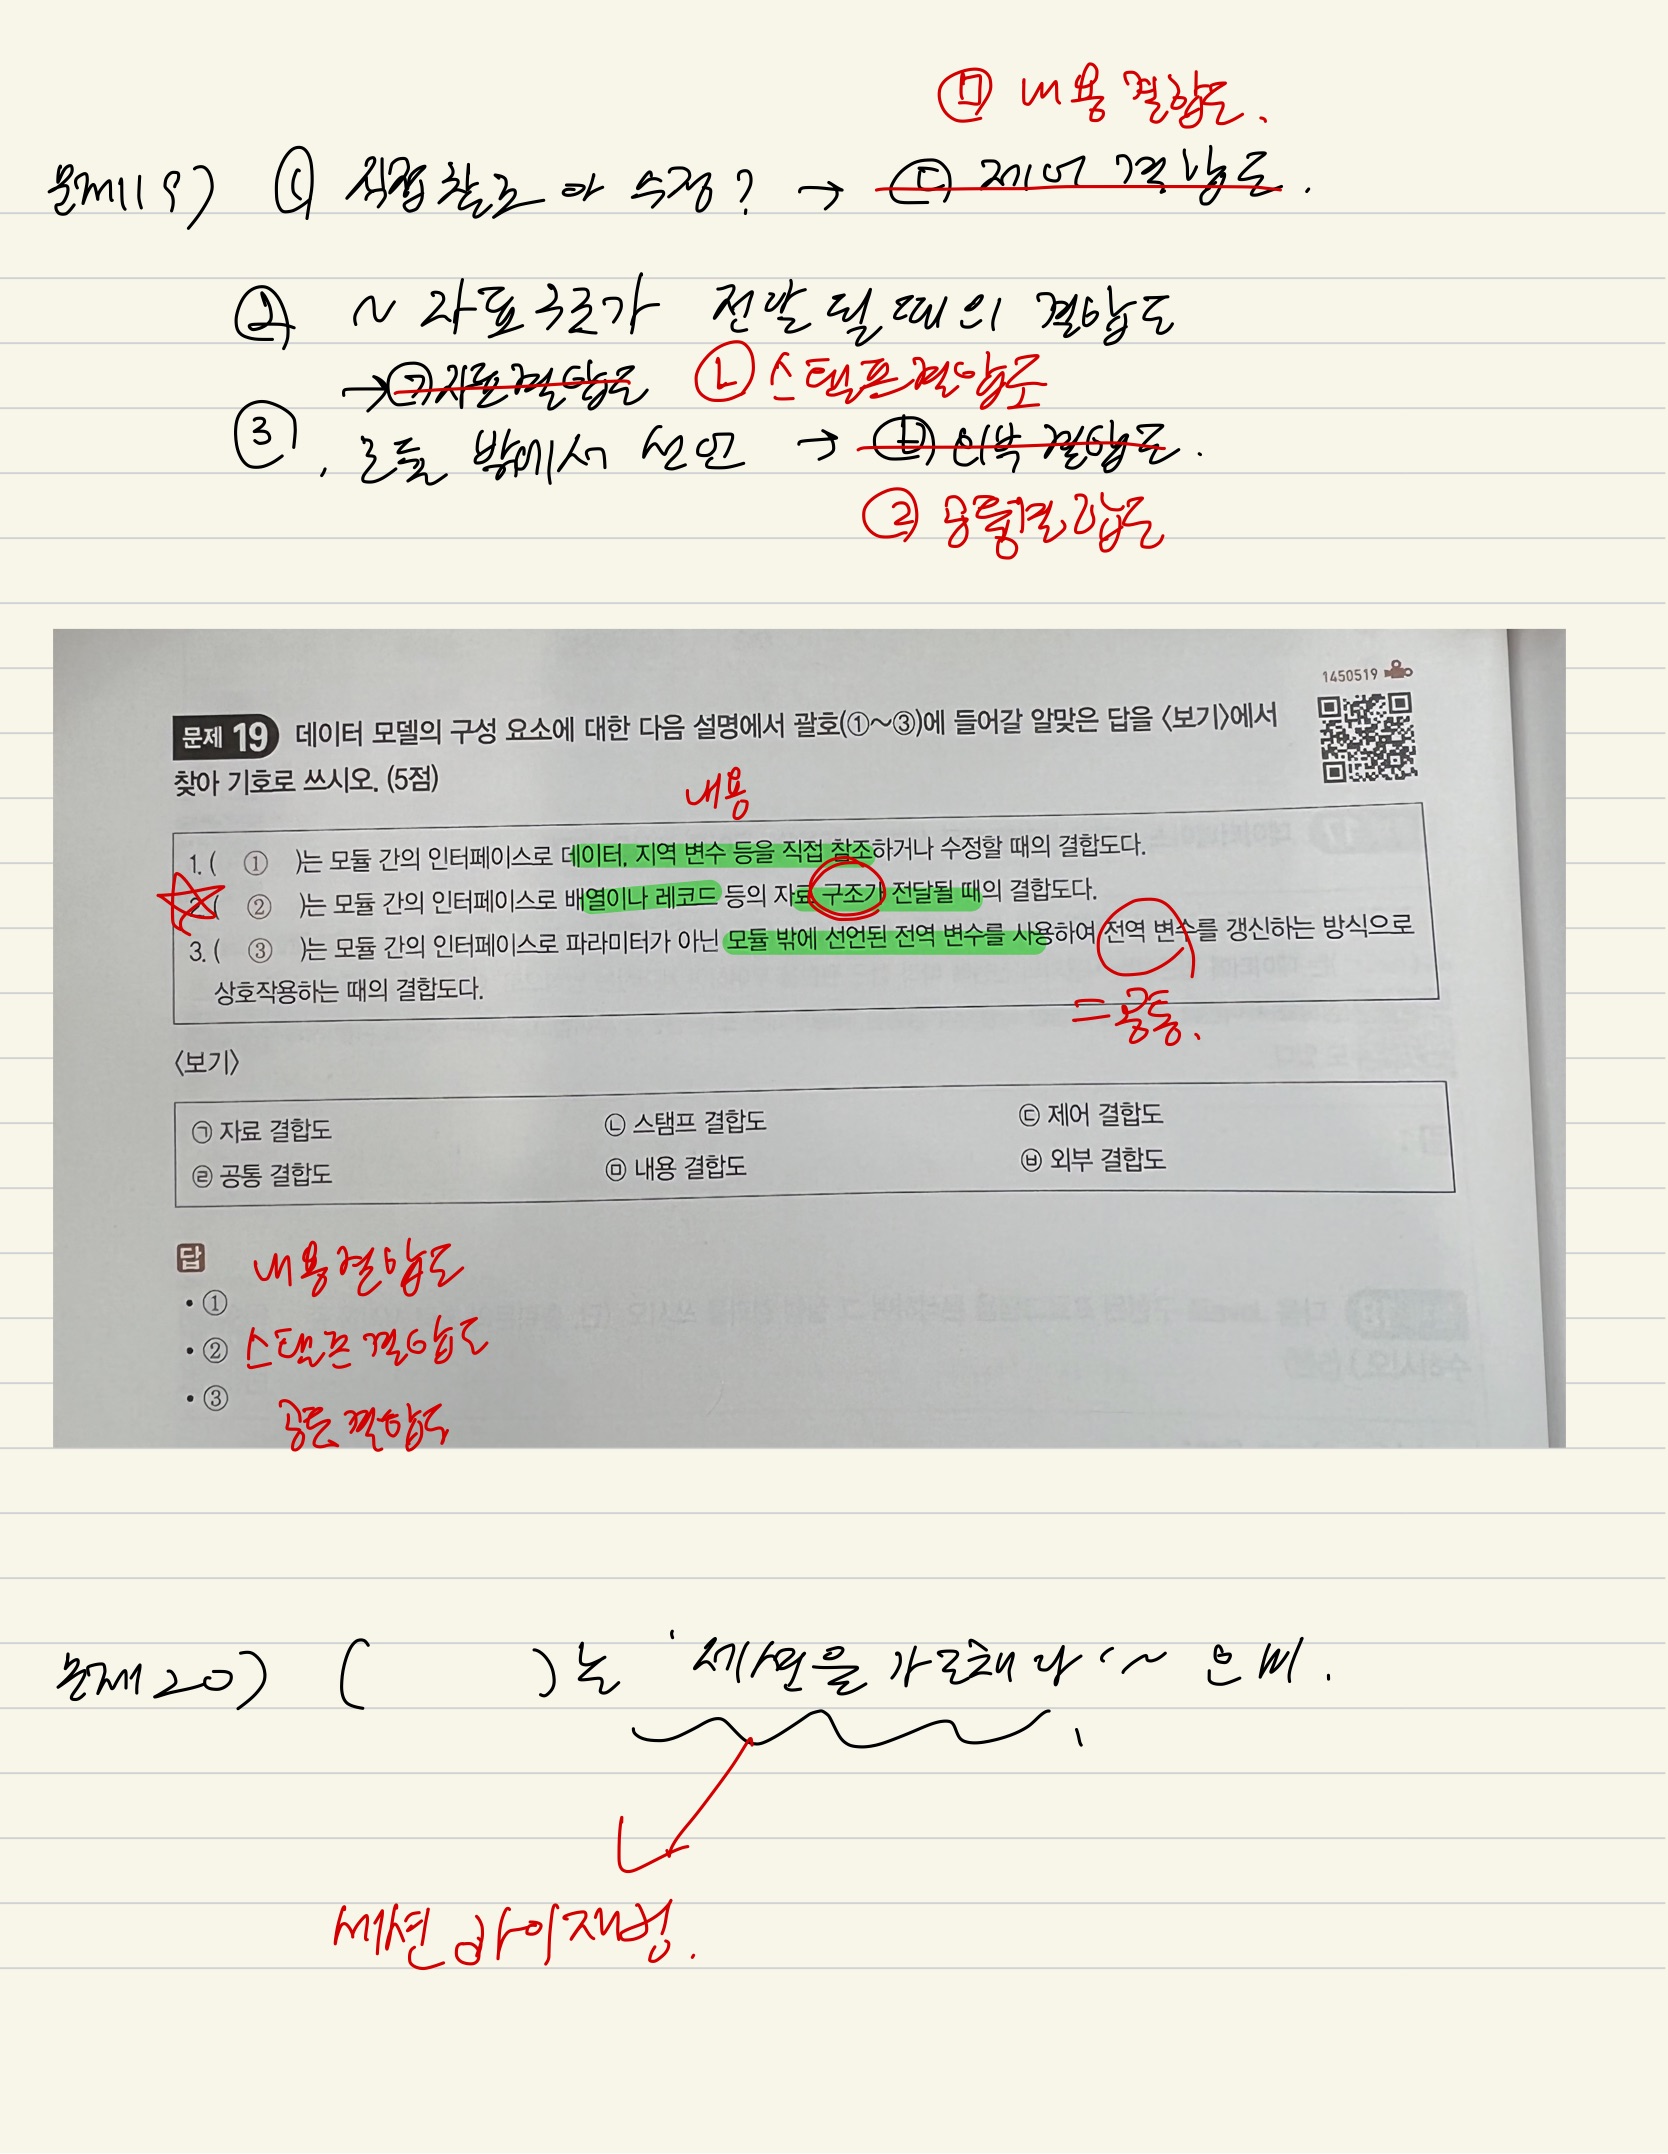 ㉤ 내용 결합도.
문제19) ① 직접참조 아 수정? → ㉢ 제어 결합도.
② ~ 자료구조가 전달될 때의 결합도
→ ㉠ 자료결합도 ㉡ 스탬프결합도
③ 모듈 밖에서 선언 → ㉥ 외부 결합도.
㉣ 공통결합도
1450519
문제 19 데이터 모델의 구성 요소에 대한 다음 설명에서 괄호(①~③)에 들어갈 알맞은 답을 <보기>에서
찾아 기호로 쓰시오. (5점)
내용
1. ( ① )는 모듈 간의 인터페이스로 데이터, 지역 변수 등을 직접 참조하거나 수정할 때의 결합도다.
2. ( ② )는 모듈 간의 인터페이스로 배열이나 레코드 등의 자료 구조가 전달될 때의 결합도다.
3. ( ③ )는 모듈 간의 인터페이스로 파라미터가 아닌 모듈 밖에 선언된 전역 변수를 사용하여 전역 변수를 갱신하는 방식으로
상호작용하는 때의 결합도다.
=공통.
<보기>
㉠ 자료 결합도 ㉡ 스탬프 결합도 ㉢ 제어 결합도
㉣ 공통 결합도 ㉤ 내용 결합도 ㉥ 외부 결합도
답
내용결합도
• ①
• ② 스탬프 결합도
• ③
공통 결합도
문제20) ( )는 '세션을 가로채다' ~ 은
세션 하이재킹.